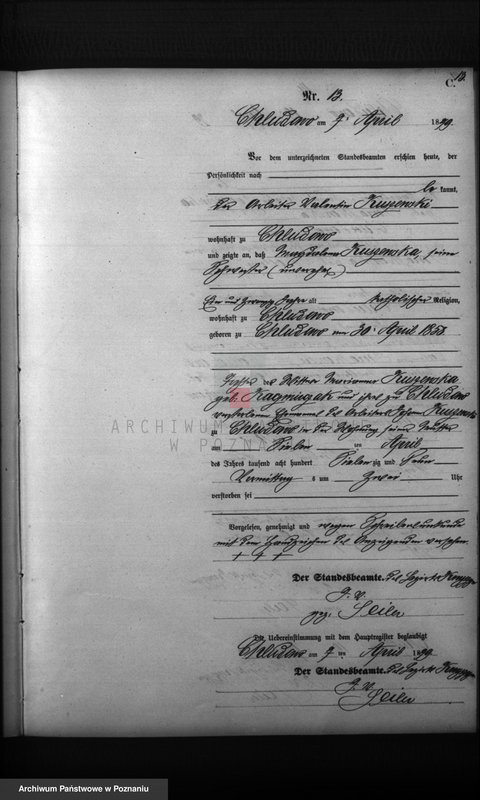 13.
C.
Nr. 13.
Chludowo am 9. April 1879
Vor dem unterzeichneten Standesbeamten erschien heute, der
Persönlichkeit nach
be kannt,
der Arbeiter Valentin Kuszewski
wohnhaft zu Chludowo
und zeigte an, daß Magdalena Kuszewska, seine
Schwester (unverehel.)
Ein und zwanzig Jahre alt katholischer Religion,
wohnhaft zu Chludowo
geboren zu Chludowo am 30. April 185
Tochter der Wittwe Marianna Kuszewska
geb. und ihres zu Chludowo
verstorbenen Ehemannes des Arbeiters Kuszewski
zu Chludowo in der Wohnung seiner Mutter
ARCHIWUM
W POZNANIU
am Sieben ten April
des Jahres tausend acht hundert Sieben zig und Neun
Vormittag s um Zwei Uhr
verstorben sei
Vorgelesen, genehmigt und wegen Schreibensunkunde
mit dem Handzeichen des Anzeigenden versehen.
+ + +
Der Standesbeamte. des Bezirks
J. V.
gez. Seiler
Die Uebereinstimmung mit dem Hauptregister beglaubigt
Chludowo am 9 ten April 1879
Der Standesbeamte. des Bezirks
J. V.
Seiler
Archiwum Państwowe w Poznaniu